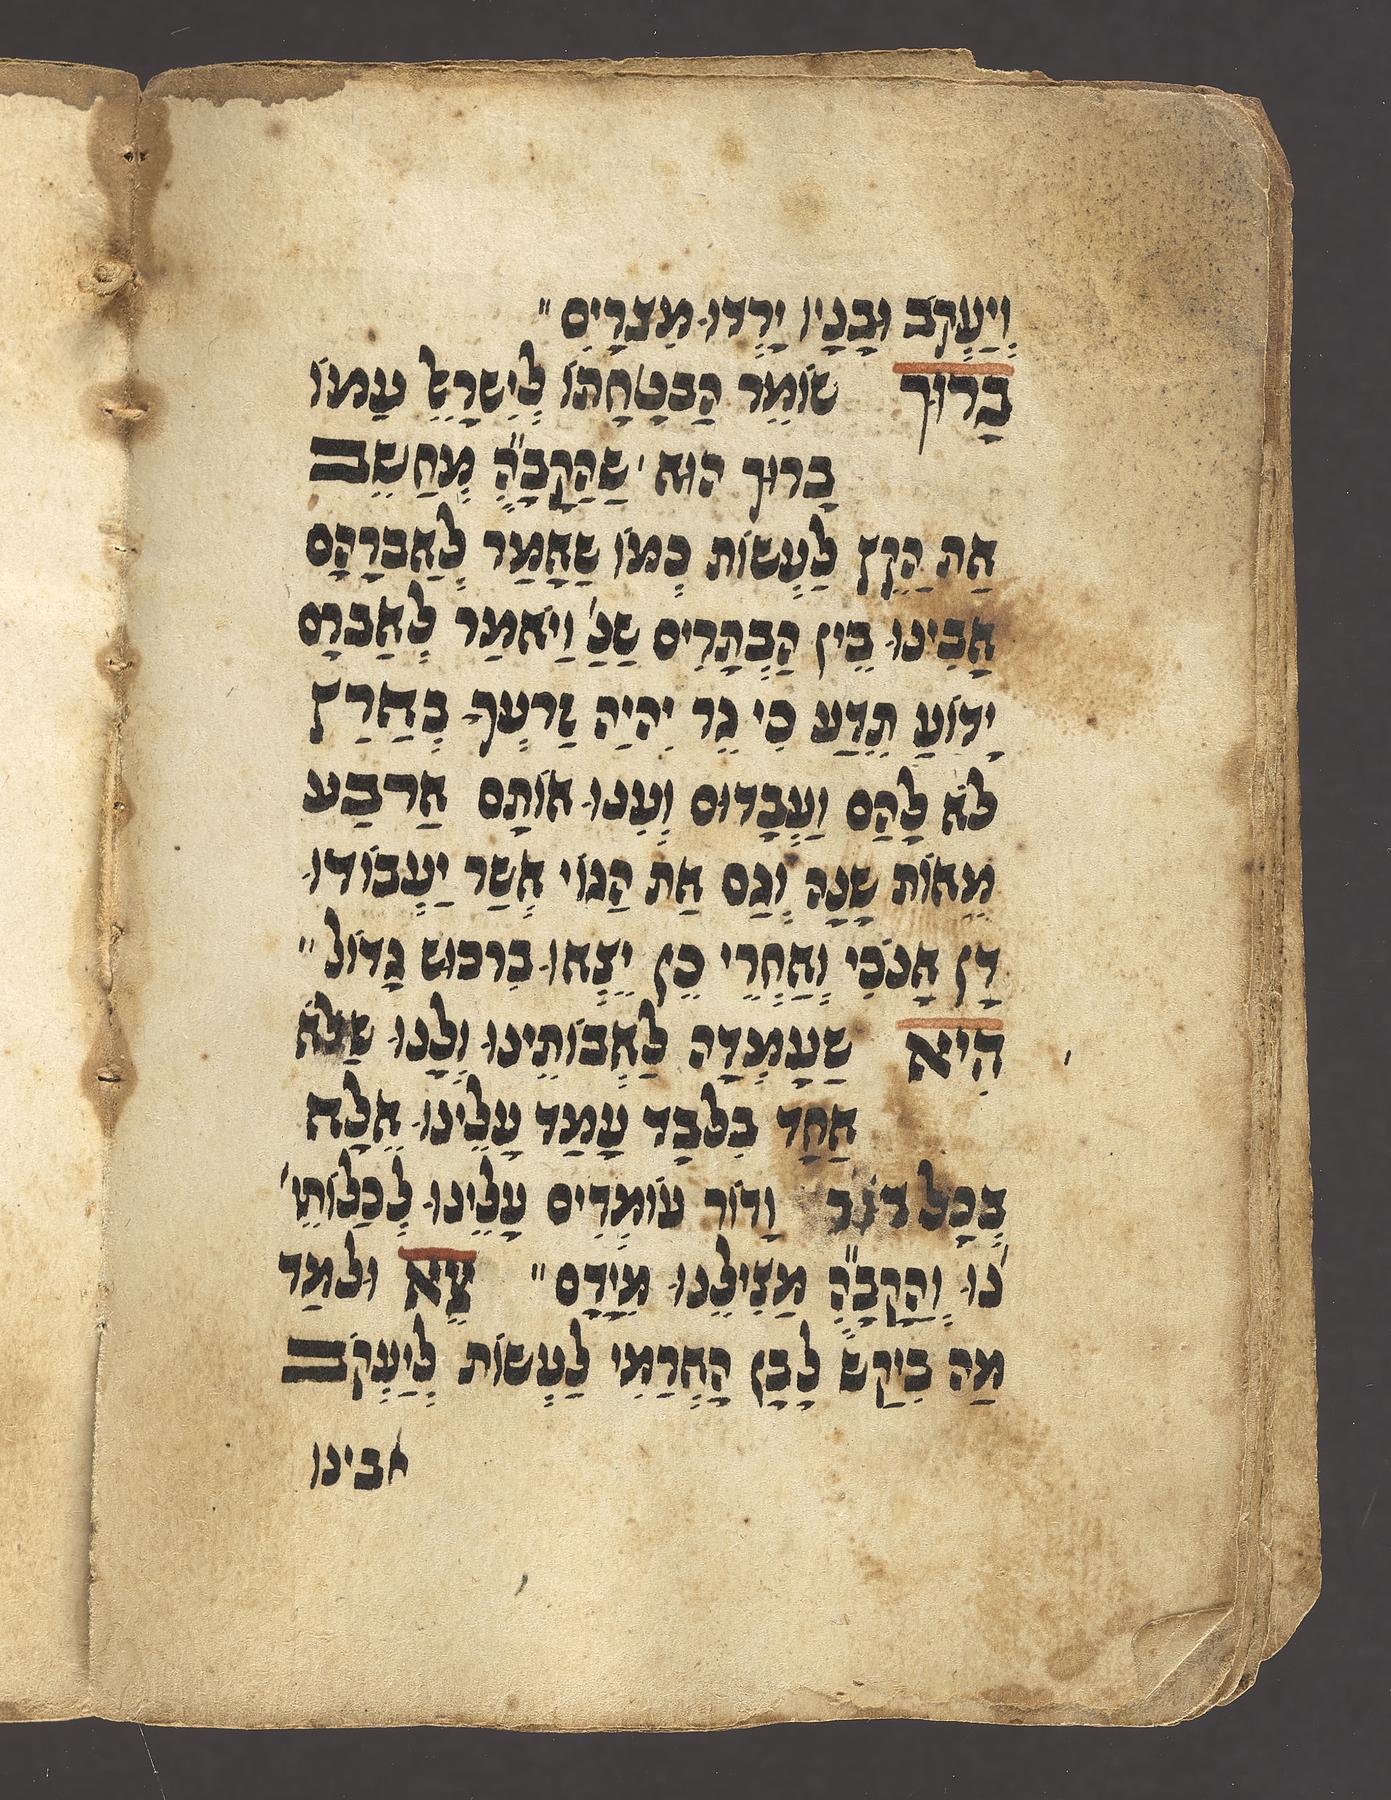 וְיַעֲקֹב וּבָנָיו יָרְדוּ מִצְרָיִם "
בָּרוּךְ שׁוֹמֵר הַבְטָחָתוֹ לְיִשְרָאֵל עַמוֹ
בָּרוּךְ הוּא ' שֶהַקָבָ"ה מְחַשֵב
אֶת הַקֵץ לַעֲשׂוֹת כְמוֹ שֶאָמַר לְאַבְרָהָם
אָבִינוּ בֵין הַבְתָרִים שֶנֶ' וַיֹאמֶר לְאַבְרָם
יָדוֹעַ תֵדַע כִי גֵר יִהְיֶה זַרְעֲךָ בְאֶרֶץ
לֹא לָהֶם וַעֲבָדוּם וְעִנוּ אוֹתָם אַרְבַע
מֵאוֹת שָנָה וְגַם אֶת הַגוֹי אֲשֶר יַעֲבוֹדוּ
דָן אָנֹכִי וְאַחֲרֵי כֵן יֵצְאוּ בִרְכוּש גָדוֹל "
הִיא שֶעָמְדָה לַאֲבוֹתֵינוּ וְלָנוּ שֶלֹא
אֶחָד בִלְבָד עָמַד עָלֵינוּ אֶלָא
בְכָל דוֹר וָדוֹר עוֹמְדִים עָלֵינוּ לְכַלוֹתֵי'
'נוּ וְהַקָבָ"ה מַצִילֵנוּ מִיָדָם " צֵא וּלְמַד
מַה בִיקֵש לָבָן הָאֲרַמִי לַעֲשׂוֹת לְיַעֲקֹב
אבינו